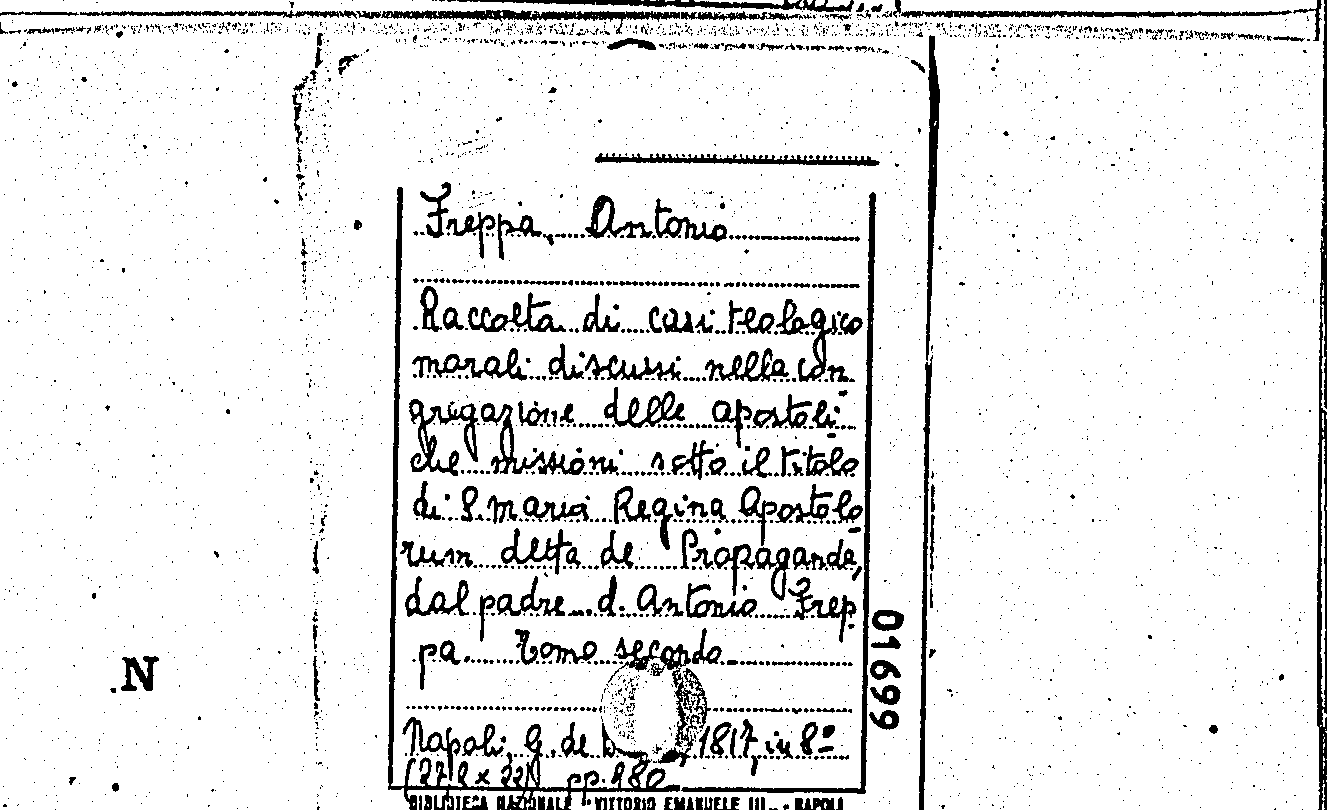 Freppa, Antonio
Raccolta di casi teologico
morali discussi nella con
gregazione delle apostoli-
che missioni sotto il titolo
di S. Maria Regina Apostolo
rum detta de Propaganda,
dal padre d. Antonio Frep
pa. Tomo secondo
01699
.N
Napoli, G. de 1817, in 8º
pp.
BIBLIOTECA NAZIONALE "VITTORIO EMANUELE III" - NAPOLI